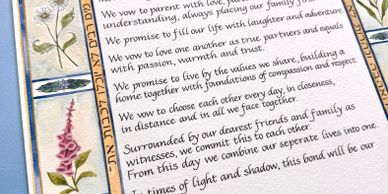 We vow to parent with love,
understanding, always placing our family
We promise to fill our life with laughter and adventure
We vow to love one another as true partners and equals
with passion, warmth and trust.
We promise to live by the values we share, building a
home together with foundations of compassion and respect.
We vow to choose each other every day, in closeness,
in distance and in all we face together.
Surrounded by our dearest friends and family as
witnesses, we commit this to each other.
From this day we combine our seperate lives into one.
In times of light and shadow, this bond will be our
מים רבים לא יוכלו לכבות את